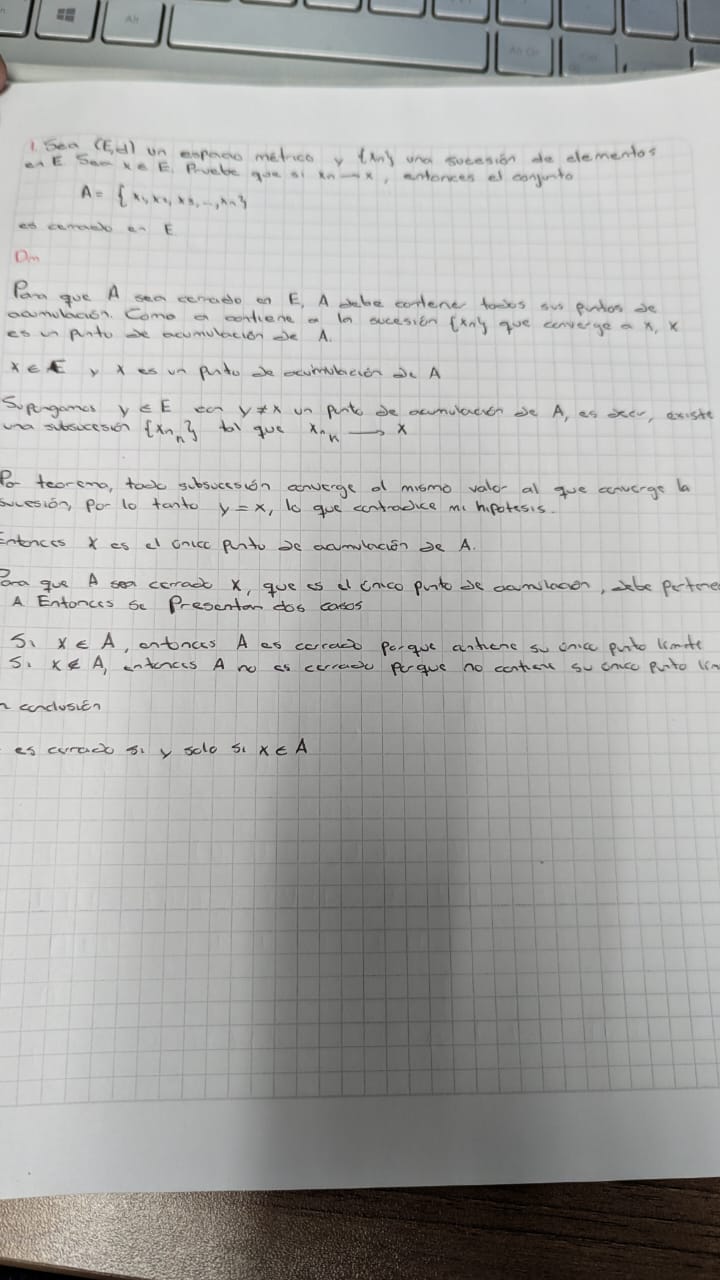 Alt
Alt Gr
1. Sea (E,d) un espacio métrico y {xn} una sucesión de elementos
en E. Sea x ∈ E. Pruebe que si xn → x, entonces el conjunto
A = { x, x1, x2, ..., xn }
es cerrado en E
Dm
Para que A sea cerrado en E, A debe contener todos sus puntos de
acumulación. Como a contiene a la sucesión {xn} que converge a x, x
es un punto de acumulación de A.
x ∈ E y x es un punto de acumulación de A
Supongamos y ∈ E con y ≠ x un punto de acumulación de A, es decir, existe
una subsucesión {xn} tal que xnk → x
Por teorema, toda subsucesión converge al mismo valor al que converge la
sucesión, por lo tanto y = x, lo que contradice mi hipotesis.
Entonces x es el único punto de acumulación de A.
Para que A sea cerrado x, que es el único punto de acumulación, debe
A Entonces se Presentan dos casos
Si x ∈ A, entonces A es cerrado porque contiene su único punto limite
Si x ∉ A, entonces A no es cerrado porque no contiene su único punto
conclusión
es cerrado si y solo si x ∈ A